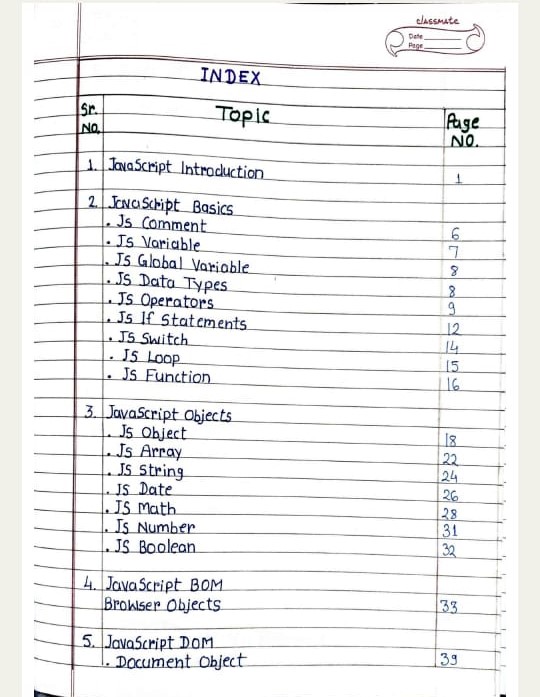 classmate
Date
Page
INDEX
Sr. No. Topic Page No.
1. JavaScript Introduction 1
2. JavaScript Basics
. Js Comment 6
. JS Variable 7
. Js Global Variable 8
. JS Data Types 8
. JS Operators 9
. Js If Statements 12
. JS Switch 14
. JS Loop 15
. JS Function 16
3. JavaScript Objects
. Js Object 18
. Js Array 22
. JS String 24
. JS Date 26
. JS Math 28
. Js Number 31
. JS Boolean 32
4. JavaScript BOM
Browser Objects 33
5. JavaScript DOM
. Document Object 39